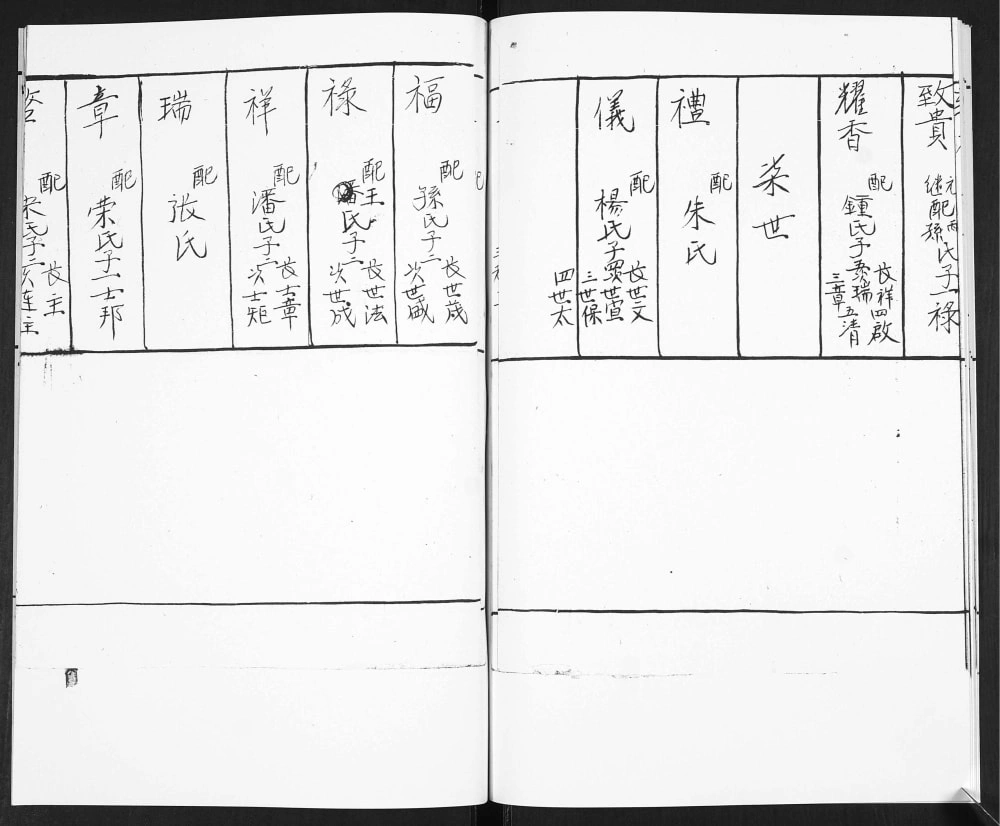 致貴
元配丙
继配孫氏子一禄
耀香
配鍾氏子五
長祥四啟
次瑞五清
三章
柒世
禮
配朱氏
儀
配楊氏子四
長世文
次世萱
三世保
四世太
福
配孫氏子二
長世歲
次世盛
禄
配王
潘氏子二
長世法
次世成
祥
配潘氏子二
長士章
次士矩
瑞
配張氏
章
配荣氏子一士邦
配
宋氏子二
長
主
次连玉